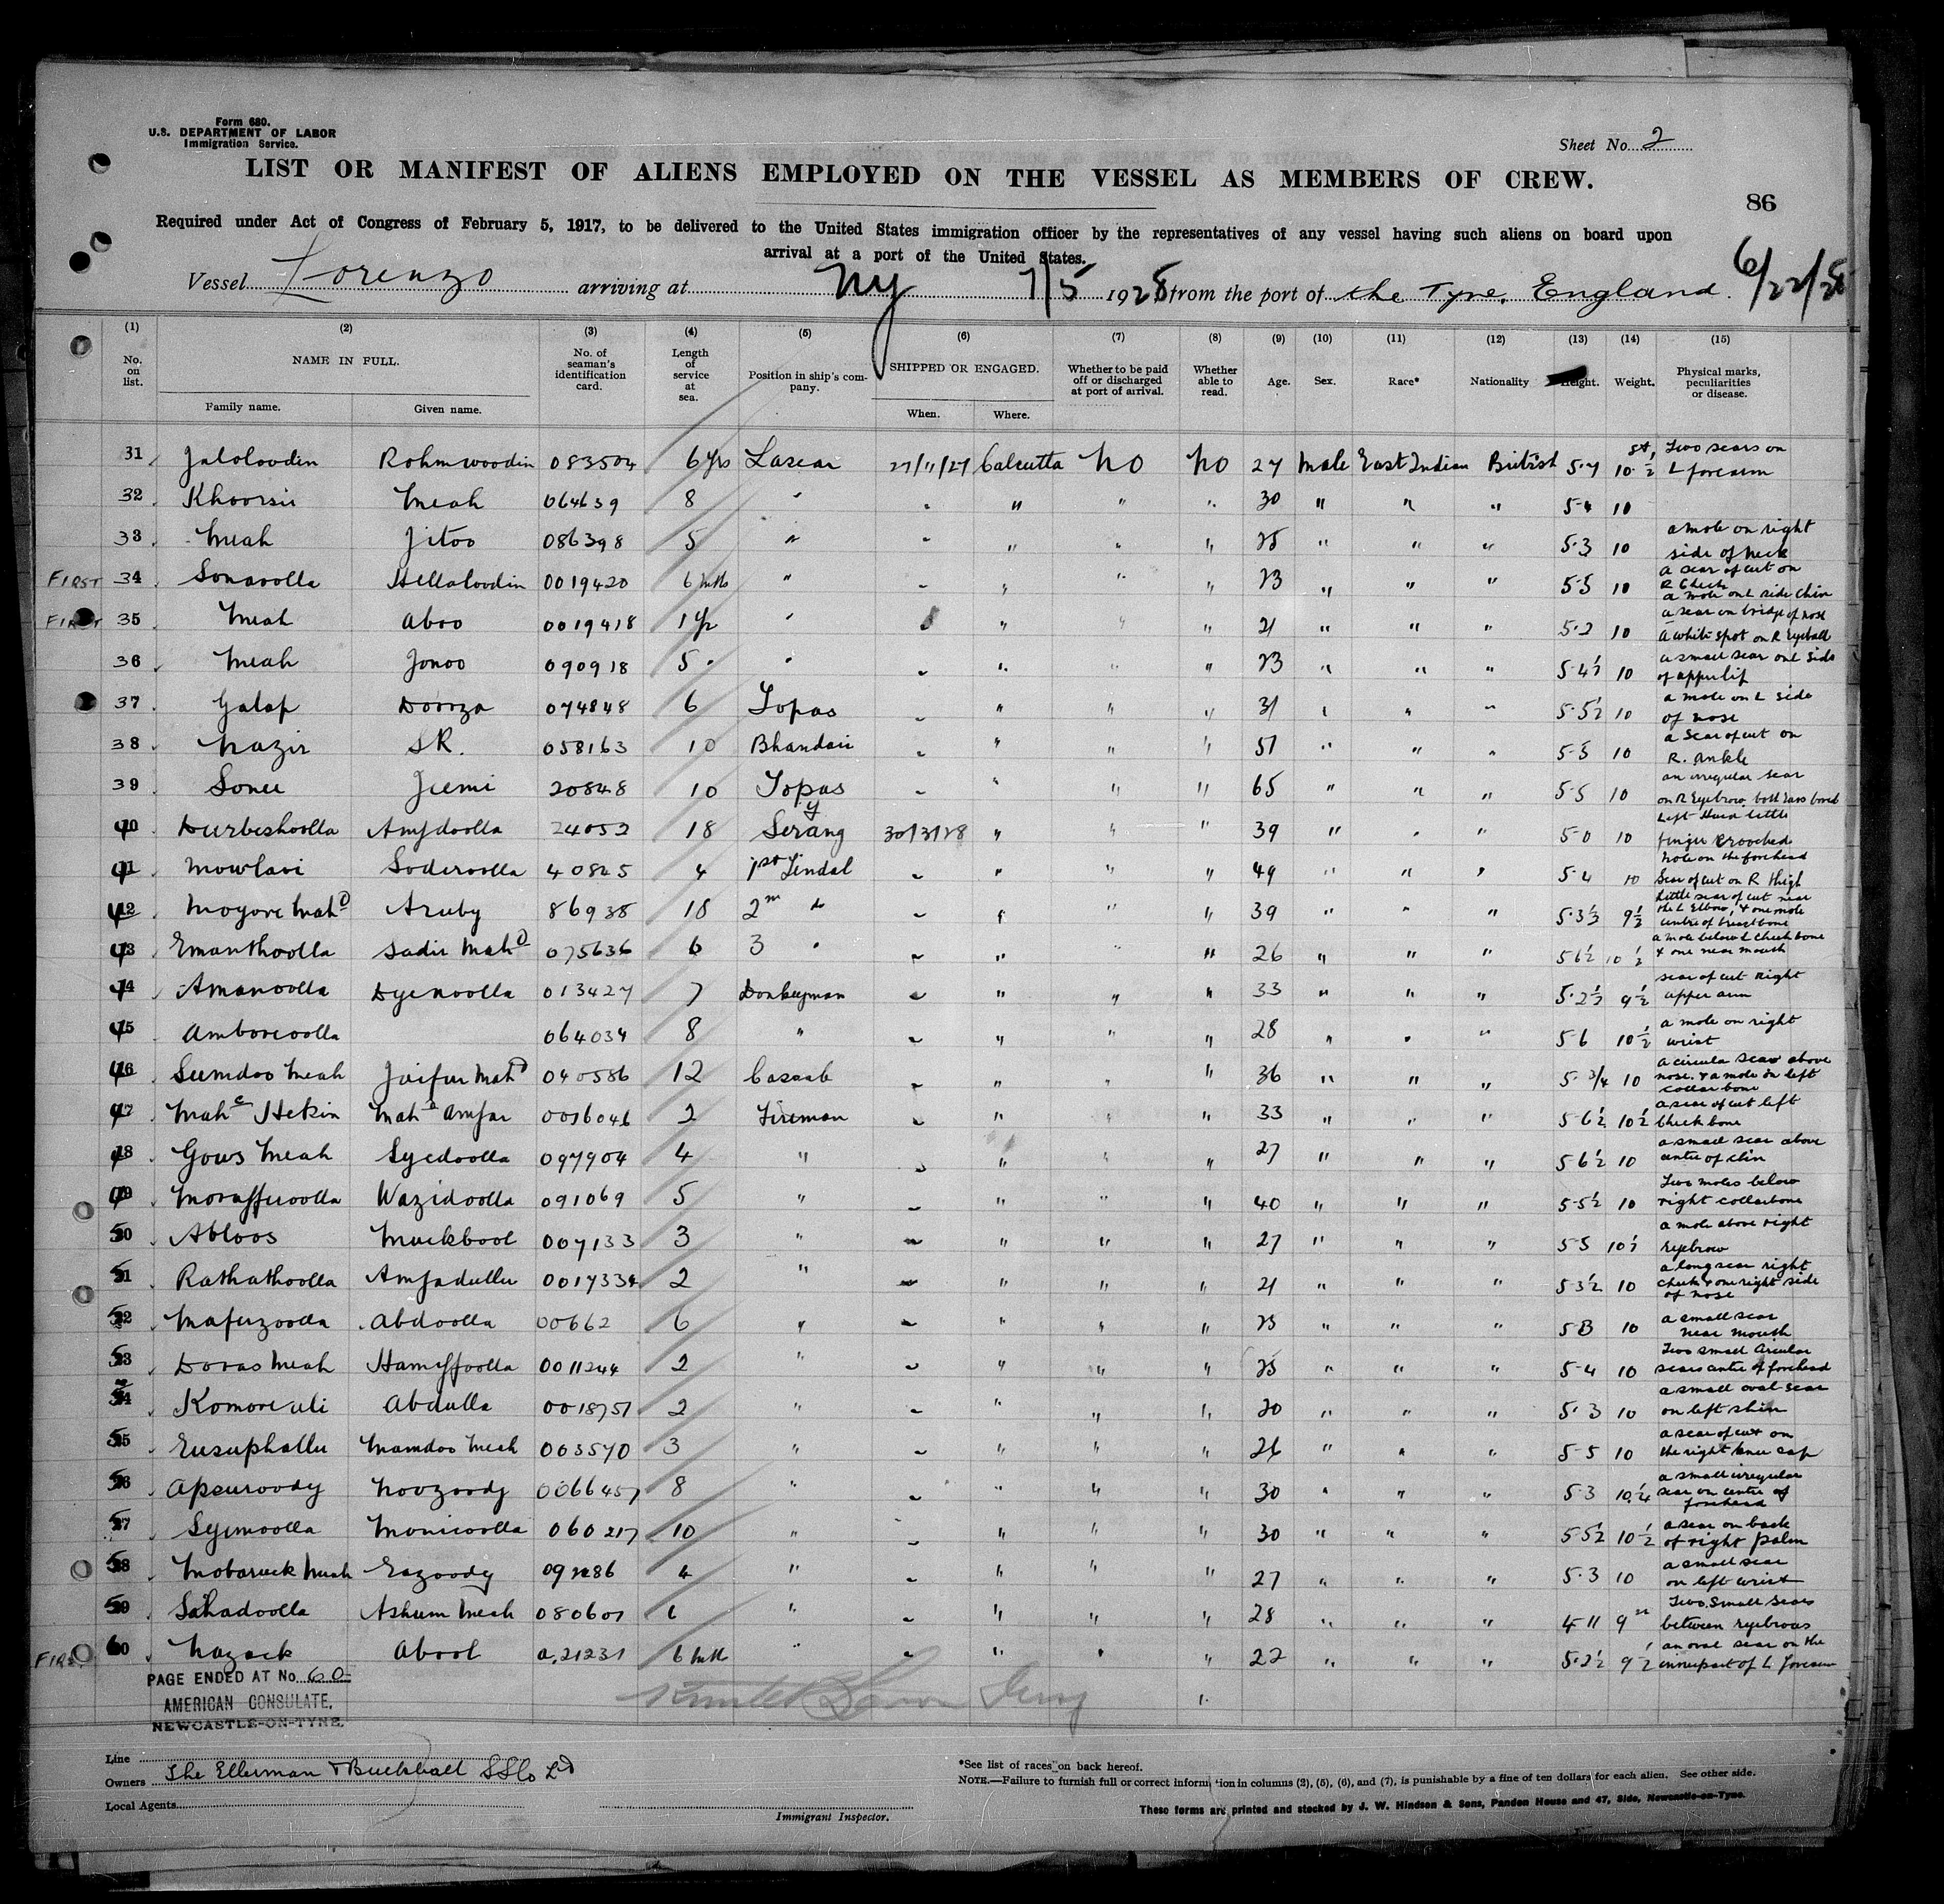 Form 680.
U.S. DEPARTMENT OF LABOR
Immigration Service.
Sheet No. 2
LIST OR MANIFEST OF ALIENS EMPLOYED ON THE VESSEL AS MEMBERS OF CREW.
86
Required under Act of Congress of February 5, 1917, to be delivered to the United States immigration officer by the representatives of any vessel having such aliens on board upon
arrival at a port of the United States.
Vessel Lorenzo arriving at NY 7/5 1928 from the port of the Tyne, England. 6/22/28
(1) (2) (3) (4) (5) (6) (7) (8) (9) (10) (11) (12) (13) (14) (15)
No. on list. NAME IN FULL. Family name. Given name. No. of seaman's identification card. Length of service at sea. Position in ship's company. SHIPPED OR ENGAGED. When. Where. Whether to be paid off or discharged at port of arrival. Whether able to read. Age. Sex. Race* Nationality Height. Weight. Physical marks, peculiarities or disease.
31 Jaloloodin Rohmwoodin 083504 6 yrs Lascar 27/11/27 Calcutta No No 27 Male East Indian British 5.7 10 1/2 Two scars on L forearm
32 Khoorsii Meah 064639 8 " " " " " 30 " " " 5.4 10
33 Meah Jitoo 086398 5 " " " " " 25 " " " 5.3 10 a mole on right side of neck
FIRST 34 Sonaoolla Hellaloodin 0019420 6 mths " " " " 23 " " " 5.5 10 a scar of cut on R Cheek a mole on L side chin
FIRST 35 Meah Aboo 0019418 1 yr " " " " 21 " " " 5.2 10 a scar on bridge of nose a white spot on R Eyeball
36 Meah Jonoo 090918 5 " " " " " 23 " " " 5.4 1/2 10 a small scar on L side of upper lip
37 Galap Doorza 074848 6 Topas " " " " 31 " " " 5.5 1/2 10 a mole on L side of nose
38 Nazir SK. 058163 10 Bhandari " " " " 51 " " " 5.5 10 a scar of cut on R. ankle
39 Sonee Jeemi 20848 10 Topas " " " " 65 " " " 5.5 10 an irregular scar on R Eyebrow both Ears bored
40 Durbeshoolla Amjdoolla 24052 18 Serang 30/3/28 " " " 39 " " " 5.0 10 Left Hand little finger crooched
41 Mowlavi Soderoolla 40825 4 1st Tindal " " " " 49 " " " 5.4 10 Mole on the forehead Scar of cut on R thigh
42 Moyore Mahd Aruby 86938 18 2nd " " " " " 39 " " " 5.3 1/2 9 1/2 little scar of cut near the L Elbow, & one mole centre of breastbone
43 Emanthoolla Sadir Mahd 075636 6 3 " " " " " 26 " " " 5.6 1/2 10 1/2 a mole below L cheek bone & one near mouth
44 Amanoolla Dyenoolla 013427 7 Donkeyman " " " " 33 " " " 5.2 1/2 9 1/2 scar of cut Right upper arm
45 Amboreoolla 064034 8 " " " " " 28 " " " 5.6 10 1/2 a mole on right wrist
46 Sumdoo Meah Jaifur Mahd 040586 12 Cassab " " " " 36 " " " 5. 3/4 10 a circular scar above nose & a mole on left collar bone
47 Mahd Hekin Mahd Amfar 0016046 2 Fireman " " " " 33 " " " 5.6 1/2 10 1/2 a scar of cut left Cheek bone
48 Gows Meah Syedoolla 097904 4 " " " " " 27 " " " 5.6 1/2 10 a small scar above centre of chin
49 Morafferoolla Wazidoolla 091069 5 " " " " " 40 " " " 5.5 1/2 10 Two moles below right collarbone
50 Abloos Muckbool 007133 3 " " " " " 27 " " " 5.5 10 1/2 a mole above right Eyebrow
51 Rathathoolla Amjadullu 0017334 2 " " " " " 21 " " " 5.3 1/2 10 a long scar right cheek & one right side of nose
52 Mafuzoolla Abdoolla 00662 6 " " " " " 25 " " " 5.3 10 a small scar near mouth
53 Doras Meah Hamiffoolla 0011244 2 " " " " " 25 " " " 5.4 10 Two small circular scars centre of forehead
54 Komore ali Abdulla 0018751 2 " " " " " 20 " " " 5.3 10 a small oval scar on left shin
55 Eusuphallu Mamdoo Meah 003570 3 " " " " " 26 " " " 5.5 10 a scar of cut on the right knee cap
56 Apsuroody Noozoody 0066457 8 " " " " " 30 " " " 5.3 10 1/4 a small irregular scar on centre of forehead
57 Syemoolla Monicoolla 060217 10 " " " " " 30 " " " 5.5 1/2 10 1/2 a scar on back of right palm
58 Mobaruck Meah Eazoody 092286 4 " " " " " 27 " " " 5.3 10 a small scar on left wrist
59 Sahadoolla Ashum Meah 080601 6 " " " " " 28 " " " 4.11 9 Two small scars between eyebrows
FIRST 60 Nazack Abool 0.21231 6 mth " " " " " 22 " " " 5.2 1/2 9 1/2 an oval scar on the innerpart of L forearm
PAGE ENDED AT No. 60
AMERICAN CONSULATE,
NEWCASTLE-ON-TYNE.
Line
Owners The Ellerman & Bucknall SS Co Ld
Local Agents
Immigrant Inspector.
*See list of races on back hereof.
NOTE.—Failure to furnish full or correct information in columns (2), (5), (6), and (7), is punishable by a fine of ten dollars for each alien. See other side.
These forms are printed and stocked by J. W. Hindson & Sons, Pandon House and 47, Side, Newcastle-on-Tyne.